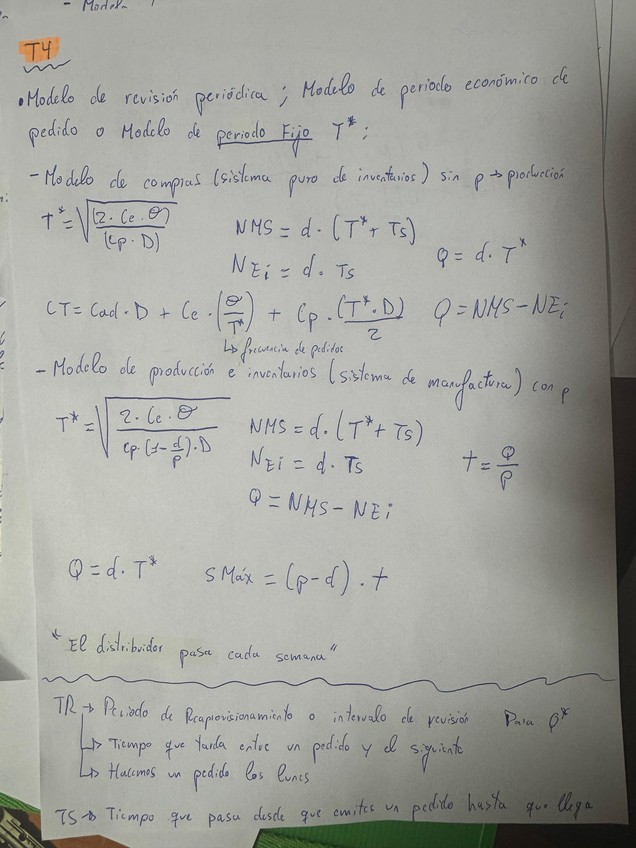 - Modelo
T4
• Modelo de revisión periódica ; Modelo de periodo económico de
pedido o Modelo de periodo Fijo T* :
- Modelo de compras (sistema puro de inventarios) sin p → producción
T* = √((2 · Ce · θ) / (Cp · D))
NMS = d · (T* + Ts)
NEi = d · Ts
Q = d · T*
CT = Cad · D + Ce · (θ / T*) + Cp · (T* · D) / 2
Q = NMS - NEi
↳ frecuencia de pedidos
- Modelo de producción e inventarios (sistema de manufactura) con p
T* = √((2 · Ce · θ) / (Cp · (1 - d/p) · D))
NMS = d · (T* + Ts)
NEi = d · Ts
t = Q / P
Q = NMS - NEi
Q = d · T*
SMáx = (p - d) · t
"El distribuidor pasa cada semana"
TR → Periodo de Reaprovisionamiento o intervalo de revisión Para Q*
↳ Tiempo que tarda entre un pedido y el siguiente
↳ Hacemos un pedido los lunes
TS → Tiempo que pasa desde que emites un pedido hasta que llega